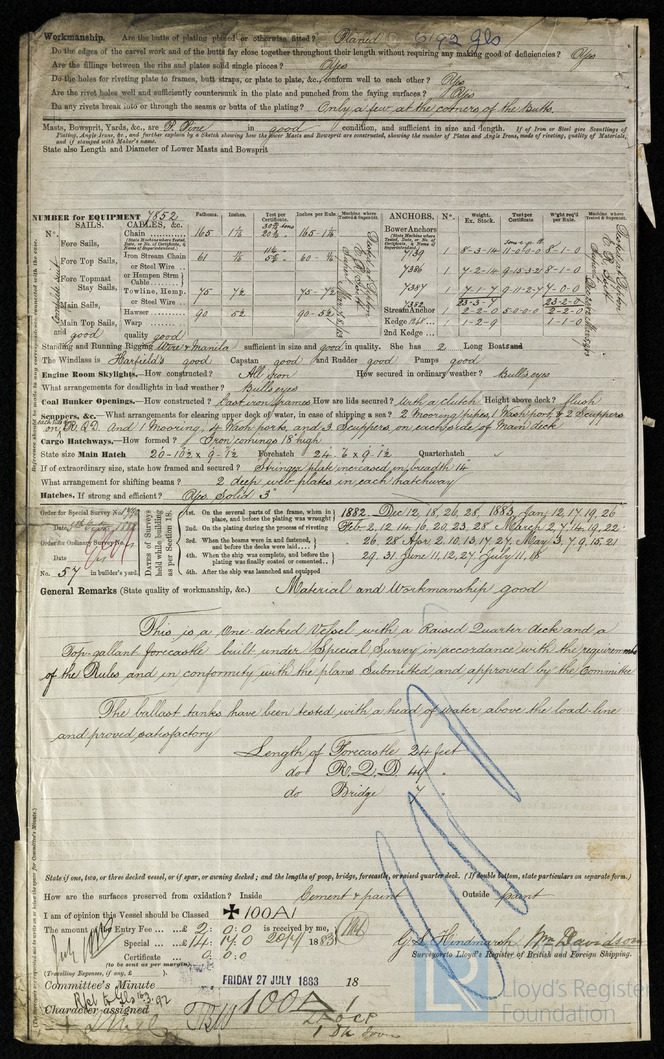 6192 Gls
Workmanship. Are the butts of plating planed or otherwise fitted? Planed
Do the edges of the carvel work and of the butts fay close together throughout their length without requiring any making good of deficiencies? Yes
Are the fillings between the ribs and plates solid single pieces? Yes
Do the holes for riveting plate to frames, butt straps, or plate to plate, &c., conform well to each other? Yes
Are the rivet holes well and sufficiently countersunk in the plate and punched from the faying surfaces? Yes
Do any rivets break into or through the seams or butts of the plating? Only a few, at the corners of the Butts.
Masts, Bowsprit, Yards, &c., are P. Pine in good condition, and sufficient in size and length. If of Iron or Steel give Scantlings of
Plating, Angle Irons, &c., and further explain by a Sketch showing how the Lower Masts and Bowsprit are constructed, showing the number of Plates and Angle Irons, mode of riveting, quality of Materials,
and if stamped with Maker's name.
State also Length and Diameter of Lower Masts and Bowsprit
NUMBER for EQUIPMENT 7852
SAILS. CABLES, &c. Fathoms. Inches. Test per Certificate. Inches per Rule. Machine where Tested & Superintd.
ANCHORS. N°. Weight. Ex. Stock. Test per Certificate W'ght req'd per Rule. Machine where Tested & Superintd.
N°. Chain 165
(State Machine where Tested, Date, or No. of Certificate, & Name of Superintendent.)
Bower Anchors
(State Machine where Tested, Date, or No. of Certificate, & Name of Superintendent.)
Fore Sails,
7139 1 8-3-14 11-0-0-0 8-1-0
Fore Top Sails, Iron Stream Chain 61
or Steel Wire
7386 1 7-2-14 9-15-3-21 8-1-0
Fore Topmast Stay Sails, or Hempen Strm Cable
Towline, Hemp. 75 7½ 75-7½
7387 1 7-1-7 9-11-2-7 7-0-0
Main Sails, or Steel Wire
23-3-7 23-2-0
Hawser 90 5½ 90-5½
Stream Anchor 1 2-2-0 5-0-0-0 2-2-0
Main Top Sails, Warp
Kedge 1 1-2-9 1-1-0
and good quality good
2nd Kedge
Standing and Running Rigging Wire & Manila sufficient in size and good in quality. She has 2 Long Boats and
The Windlass is Harfield's good Capstan good and Rudder good Pumps good
Engine Room Skylights.—How constructed? All Iron How secured in ordinary weather? Bulls eyes
What arrangements for deadlights in bad weather? Bulls eyes
Coal Bunker Openings.—How constructed? Cast iron frames How are lids secured? With a clutch Height above deck? flush
Scuppers, &c.—What arrangements for clearing upper deck of water, in case of shipping a sea? 2 Mooring pipes, 1 Wash port, & 2 Scuppers
on R.Q.D. And 1 Mooring, 4 Wash ports, and 3 Scuppers, on each side of Main deck
Cargo Hatchways.—How formed? Iron comings 18" high
State size Main Hatch 20-10½ x 9-1½ Forehatch 24-6 x 9-1½ Quarterhatch
If of extraordinary size, state how framed and secured? Stringer plate increased in breadth 14
What arrangement for shifting beams? 2 deep web plates in each hatchway
Hatches. If strong and efficient? Yes. Solid 3"
Order for Special Survey No.
Date
Order for Ordinary Survey No.
Date
No. 57 in builder's yard.
DATES of Surveys held while building as per Section 18.
1st. On the several parts of the frame, when in place, and before the plating was wrought
2nd. On the plating during the process of riveting
3rd. When the beams were in and fastened, and before the decks were laid
4th. When the ship was complete, and before the plating was finally coated or cemented
5th. After the ship was launched and equipped
1882. Dec 12, 18, 26, 28, 1883. Jan 12, 17, 19, 26
Feb 2, 12, 14, 16, 20, 23, 28 March 2, 7, 14, 19, 22
26, 28 Apr 2, 10, 13, 17, 27, May 3, 7, 9, 15, 21
29, 31, June 11, 12, 27, July 11, 18
General Remarks (State quality of workmanship, &c.) Material and Workmanship good
This is a One-decked Vessel with a Raised Quarter deck and a
Top-gallant forecastle built under Special Survey in accordance with the requirements
of the Rules and in conformity with the plans Submitted and approved by the Committee
The ballast tanks have been tested with a head of water above the load-line
and proved satisfactory
Length of Forecastle 24 feet
do R.Q.D. 49 "
do Bridge 7 "
State if one, two, or three decked vessel, or if spar, or awning decked; and the lengths of poop, bridge, forecastle, or raised quarter deck. (If double bottom, state particulars on separate form.)
How are the surfaces preserved from oxidation? Inside Cement & paint Outside paint
I am of opinion this Vessel should be Classed ✠ 100A1
The amount of Entry Fee ... £ 2: 0: 0 is received by me,
Special ... £ 14: 17: 0 20/7/ 1883
Certificate ... 0: 0: 0
(to be sent as per margin)
(Travelling Expenses, if any, £ ).
G.S. Hindmarsh, Wm Davidson
Surveyors to Lloyd's Register of British and Foreign Shipping.
Committee's Minute FRIDAY 27 JULY 1883 18
Character assigned 100A1
Lloyd's Register
Foundation